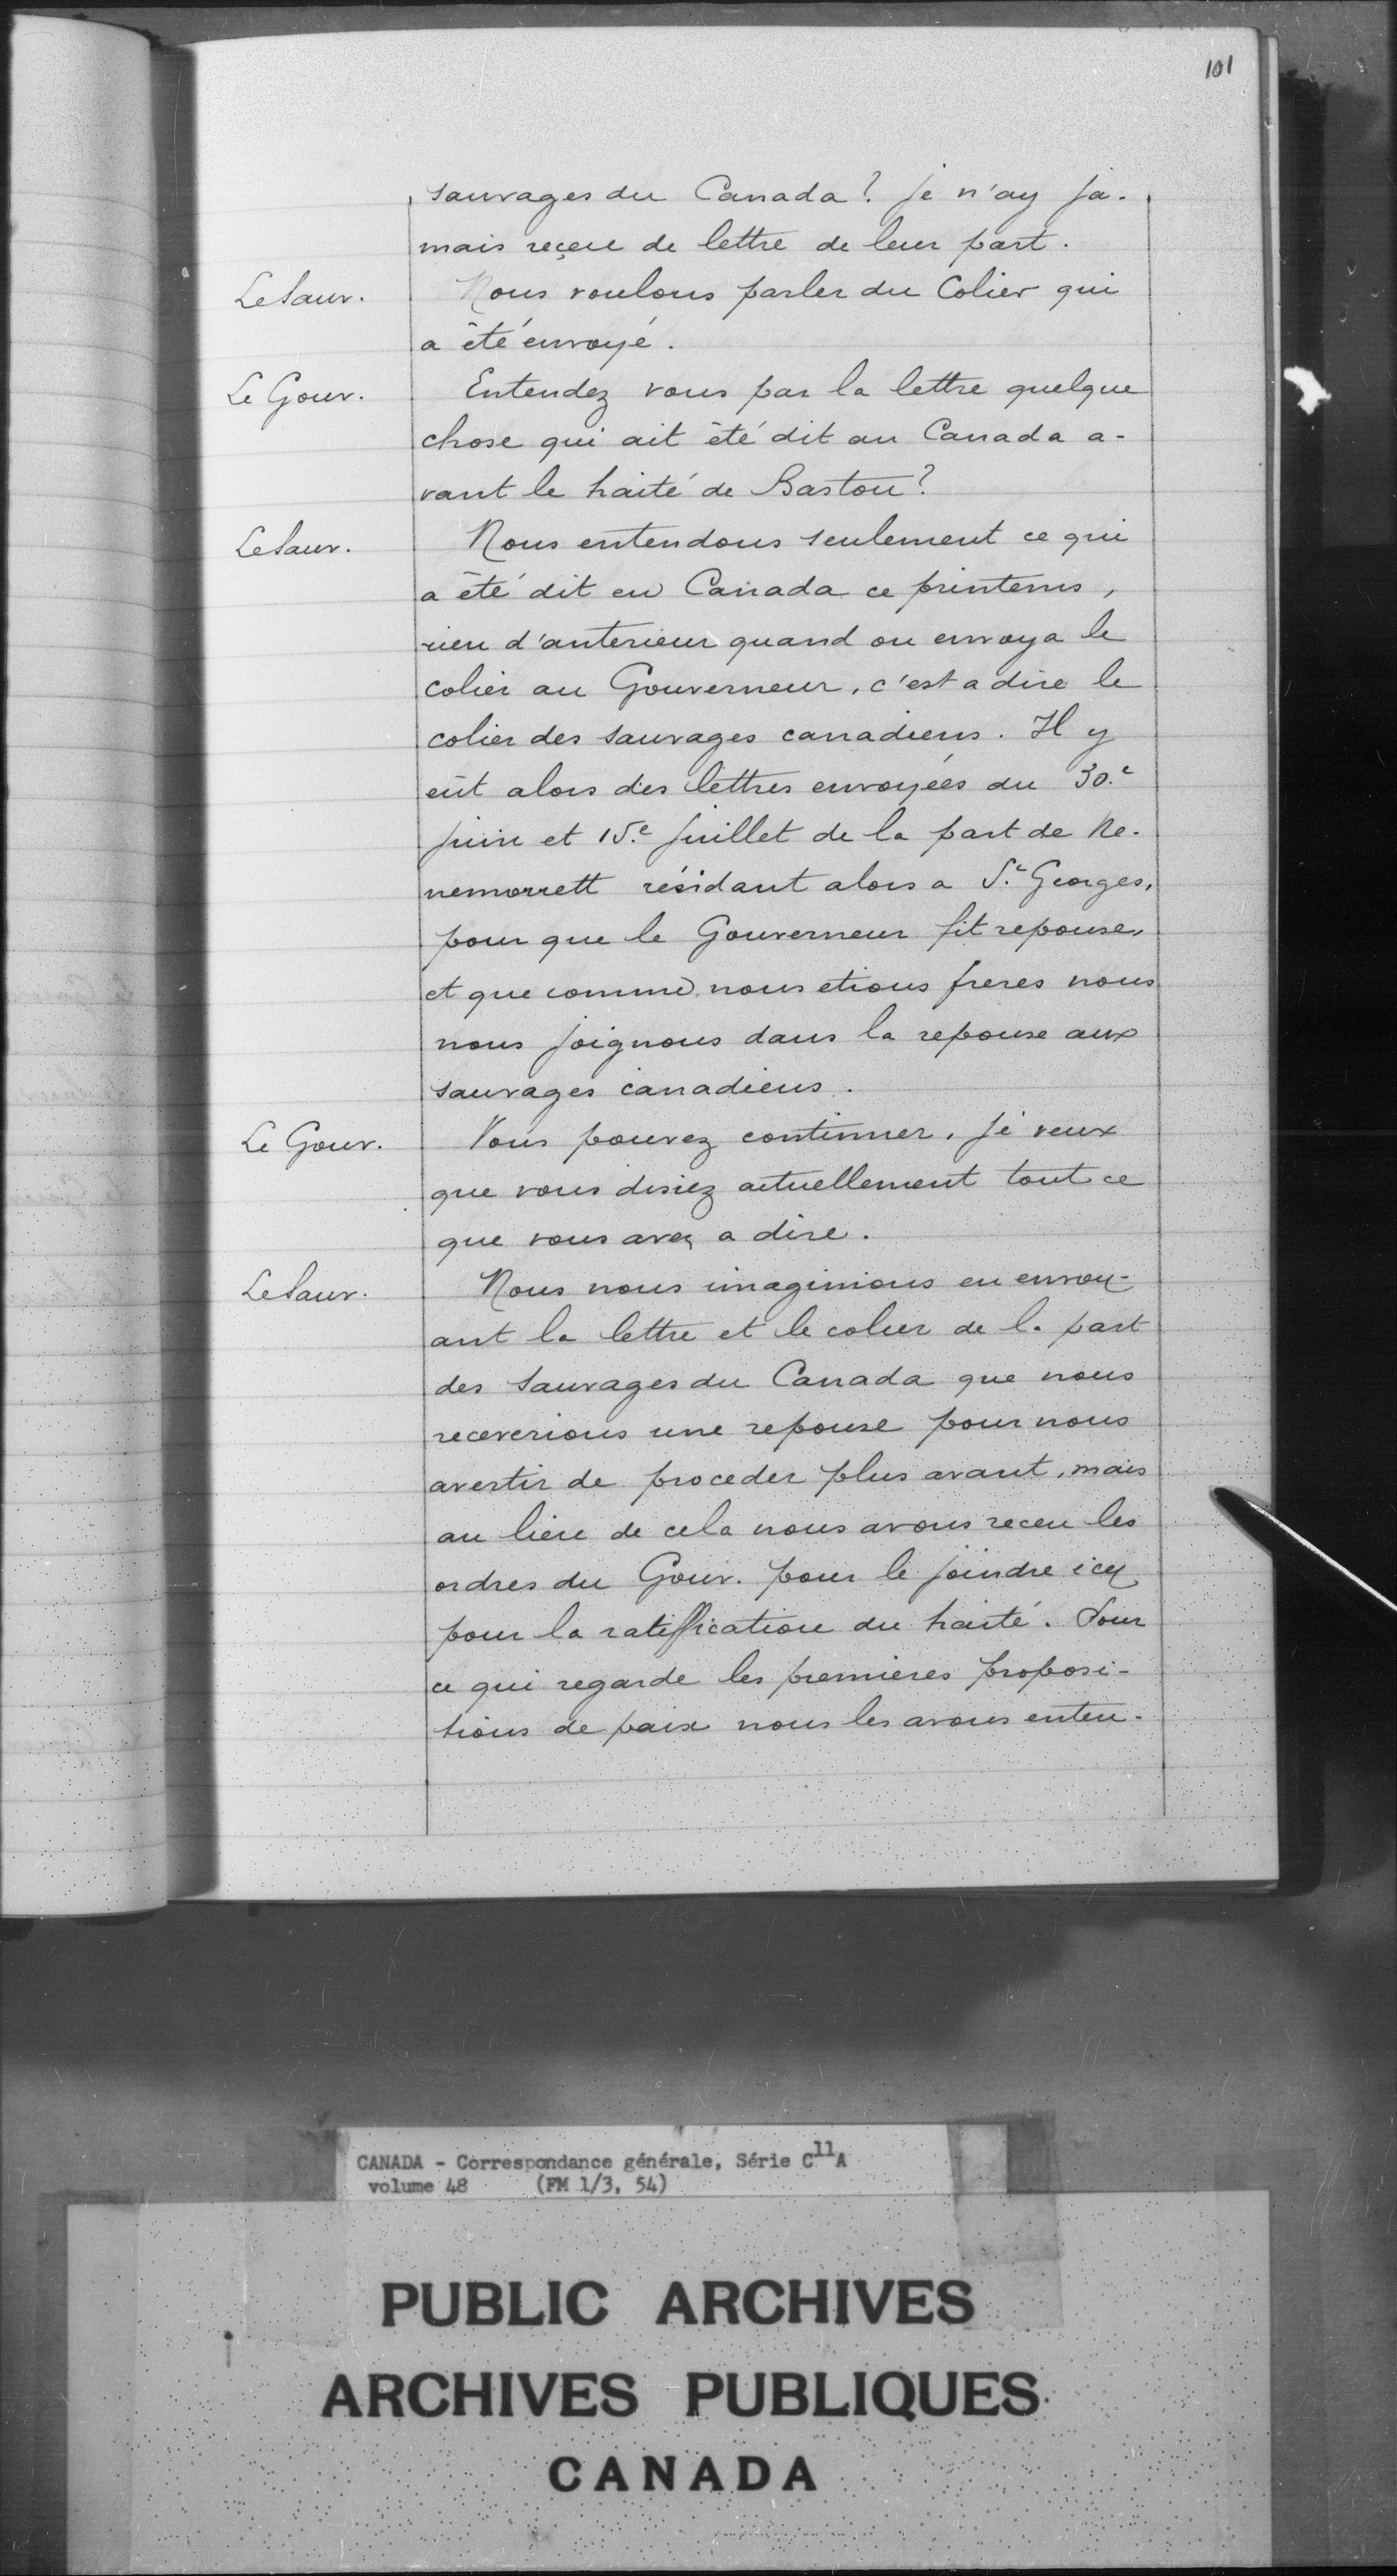 101
sauvages du Canada? je n'ay ja-
mais reçeu de lettre de leur part.
Le Sauv. Nous voulons parler du Colier qui
a été envoyé.
Le Gouv. Entendez vous par la lettre quelque
chose qui ait été dit au Canada a-
vant le traité de Baston?
Le Sauv. Nous entendons seulement ce qui
a été dit en Canada ce printems,
rien d'anterieur quand on envoya le
colier au Gouverneur, c'est a dire le
colier des sauvages canadiens. Il y
eût alors des lettres envoyées du 30.e
juin et 15.e juillet de la part de Ne-
nemorrett résidant alors a St Georges,
pour que le Gouverneur fit reponse,
et que comme nous etions freres nous
nous joignons dans la reponse aux
sauvages canadiens.
Le Gouv. Vous pouvez continuer, je veux
que vous disiez actuellement tout ce
que vous avez a dire.
Le Sauv. Nous nous imaginions en envoy-
ant la lettre et le colier de la part
des Sauvages du Canada que nous
receverions une reponse pour nous
avertir de proceder plus avant, mais
au lieu de cela nous avons receu les
ordres du Gouv. pour le joindre icy
pour la ratiffication du traité. Pour
ce qui regarde les premieres proposi-
tions de paix nous les avons enten-
CANADA - Correspondance générale, Série C11A
volume 48 (FM 1/3, 54)
PUBLIC ARCHIVES
ARCHIVES PUBLIQUES
CANADA